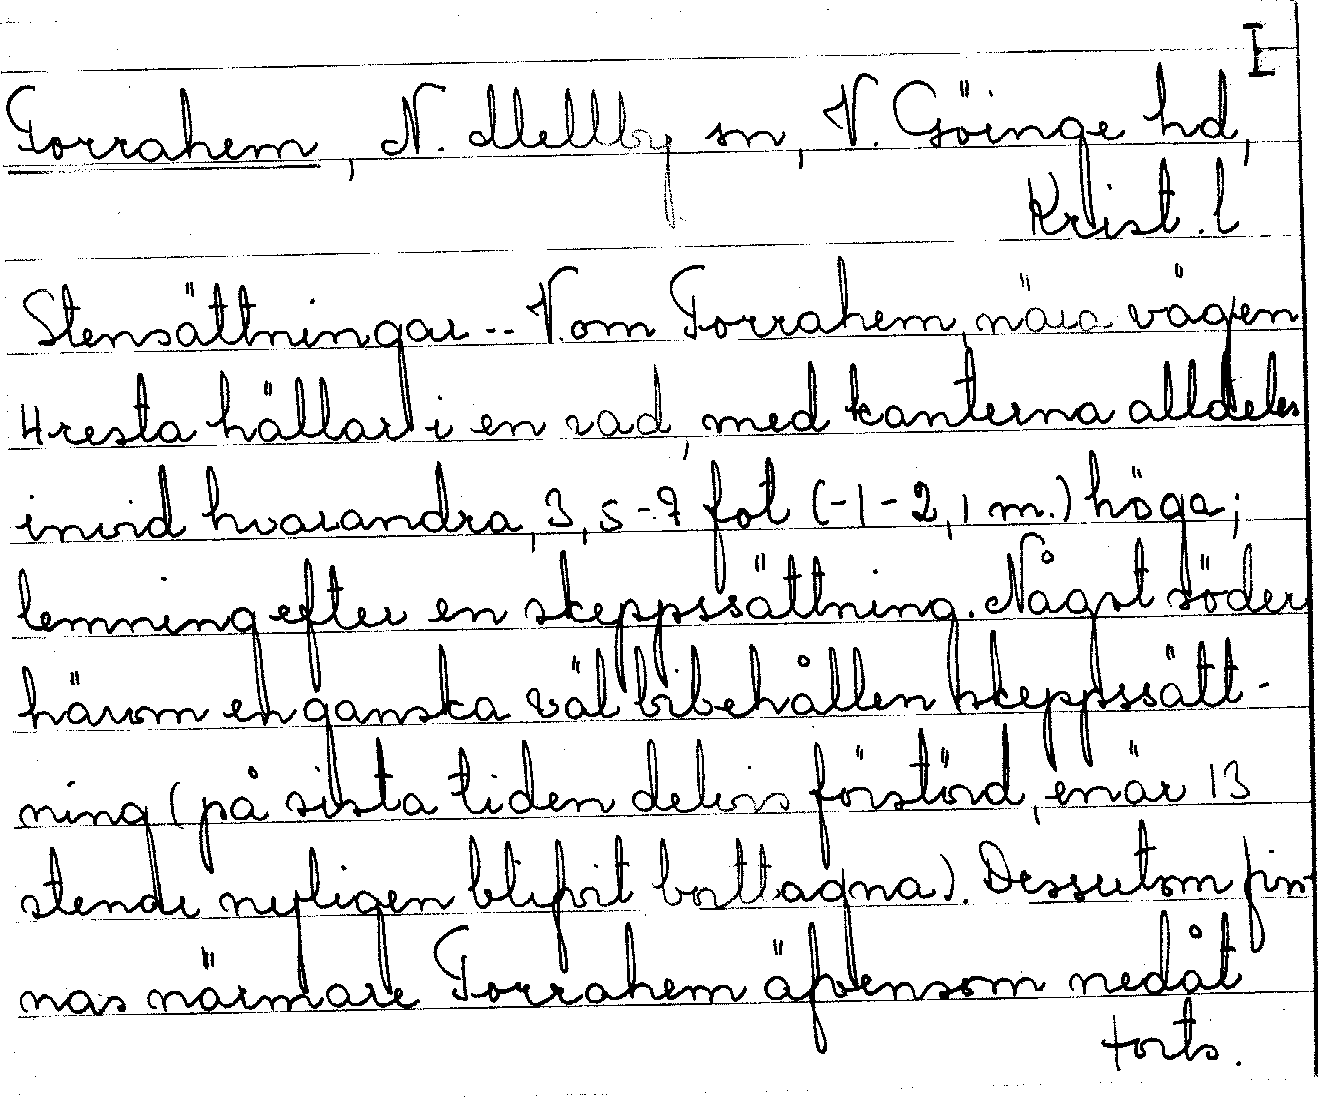 I
Torrahem, N. Mellby sn, V. Göinge hd,
Krist. l
Stensättningar -- V. om Torrahem, nära vägen
4 resta hällar i en rad, med kanterna alldeles
invid hvarandra, 3,5-7 fot (-1-2,1 m.) höga;
lemning efter en skeppssättning. Något söder
härom en ganska väl bibehållen skeppssätt-
ning (på sista tiden delvis förstörd, enär 13
stenar nyligen blifvit borttagna). Dessutom fin-
nas närmare Torrahem äfvensom nedåt
forts.